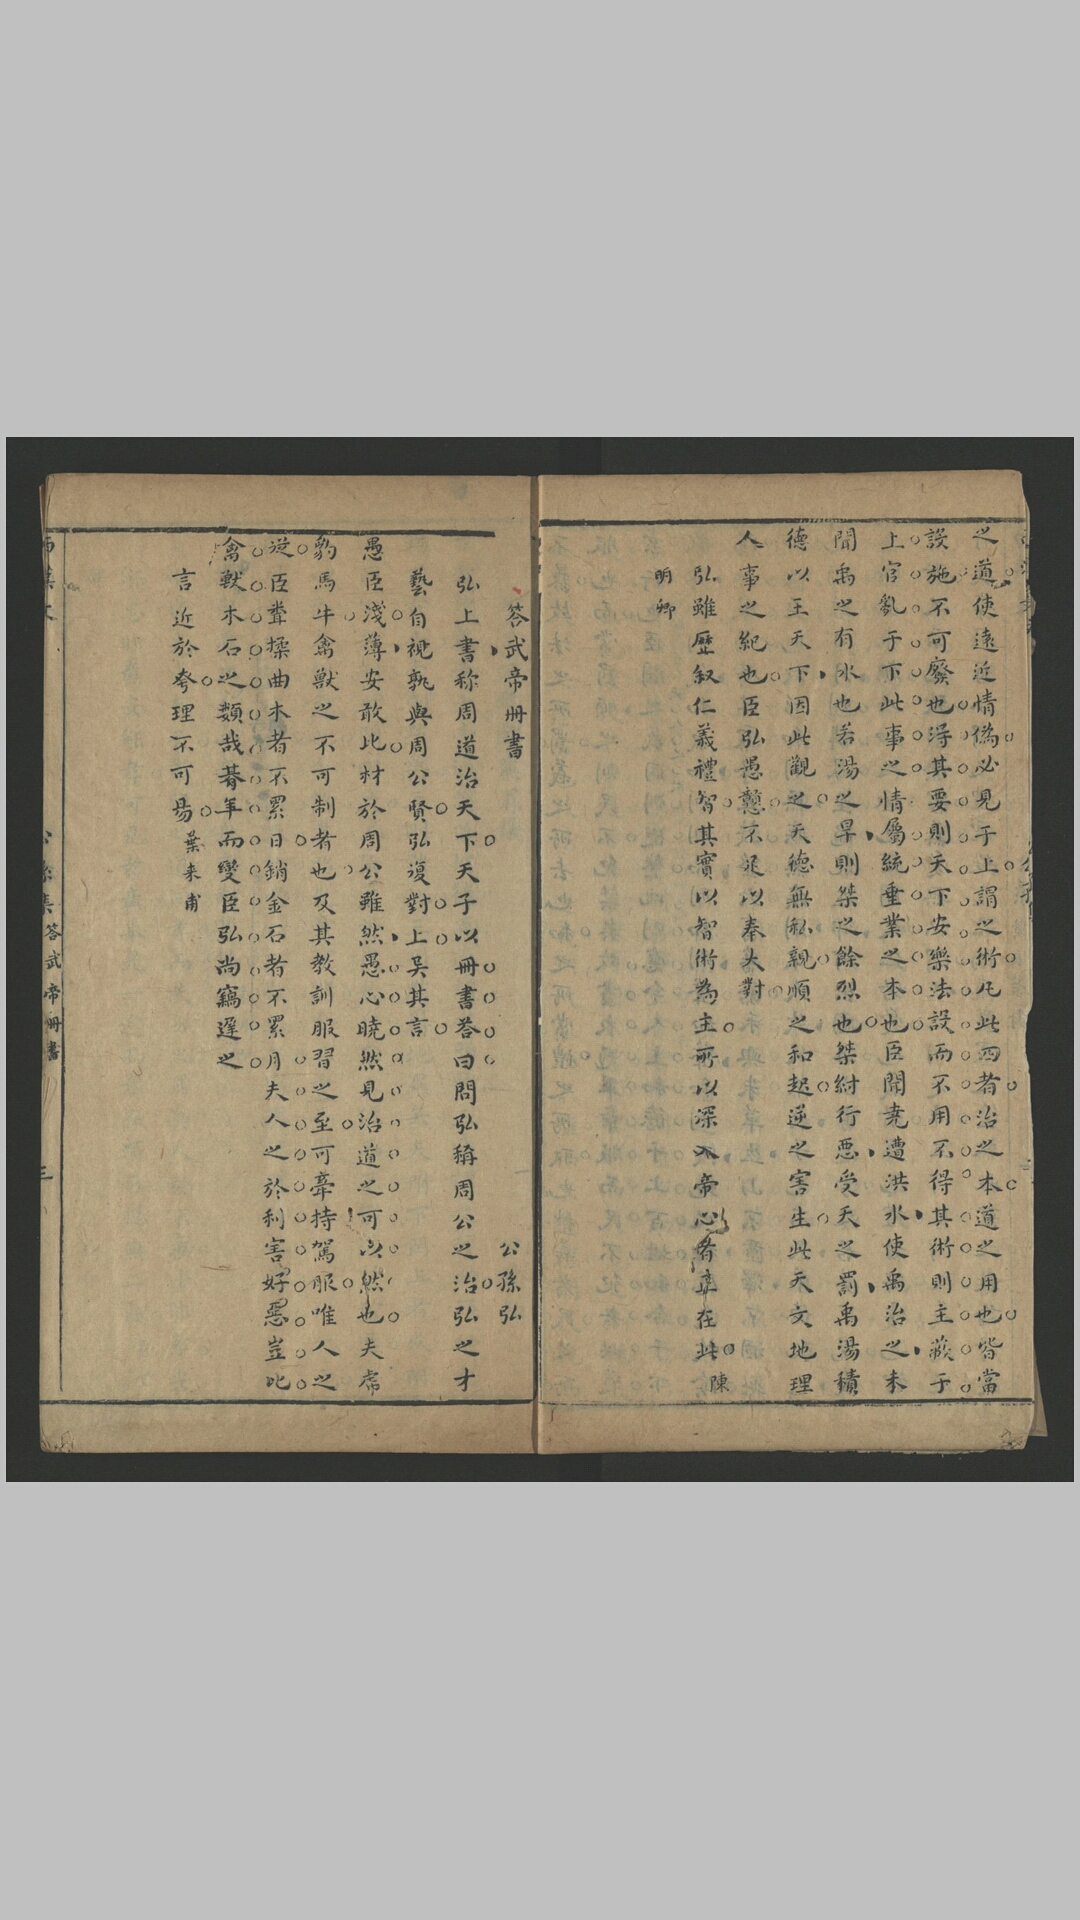 之道使遠近情偽必見于上謂之術凡此四者治之本道之用也皆當
設施不可廢也得其要則天下安樂法設而不用不得其術則主蔽于
上官亂于下此事之情屬統垂業之本也臣聞堯遭洪水使禹治之未
聞禹之有水也若湯之旱則桀之餘烈也桀紂行惡受天之罰禹湯積
德以王天下因此觀之天德無私親順之和起逆之害生此天文地理
人事之紀也臣弘愚戇不足以奉大對
弘雖歷叙仁義禮智其實以智術為主所以深入帝心者亶在此 陳
明卿
答武帝册書 公孫弘
弘上書称周道治天下天子以冊書荅曰問弘稱周公之治弘之才
藝自視孰與周公賢弘復對上吴其言
愚臣淺薄安敢比材於周公雖然愚心曉然見治道之可以然也夫虎
豹馬牛禽獸之不可制者也及其教訓服習之至可牽持駕服唯人之
從臣聞揉曲木者不累日銷金石者不累月夫人之於利害好惡豈比
禽獸木石之類哉朞年而變臣弘尚竊遲之
言近於夸理不可易 葉来甫
西漢文 公孫集 答武帝册書 三